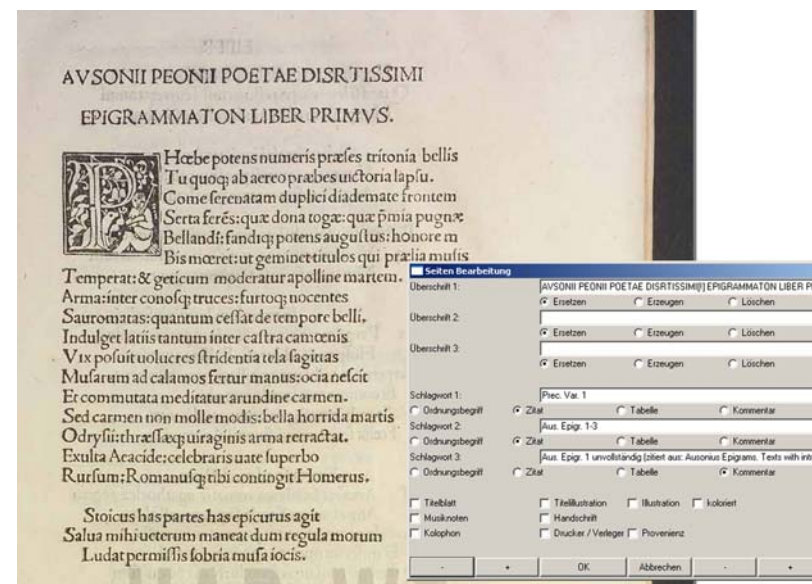 AVSONII PEONII POETAE DISRTISSIMI
EPIGRAMMATON LIBER PRIMVS.
PHœbe potens numeris præses tritonia bellis
Tu quoq; ab aereo præbes uictoria lapsu.
Come serenatam duplici diademate frontem
Serta ferẽs: quæ dona togæ: quæ p̃mia pugnæ
Bellandi: fandiq; potens augustus: honore m
Bis mœret: ut geminet titulos qui prælia musis
Temperat: & geticum moderatur apolline martem.
Arma: inter conosq; truces: furtoq; nocentes
Sauromatas: quantum cessat de tempore belli,
Indulget latiis tantum inter castra camœnis
Vix posuit uolucres stridentia tela sagittas
Musarum ad calamos fertur manus: ocia nescit
Et commutata meditatur arundine carmen.
Sed carmen non molle modis: bella horrida martis
Odrysii: thræssæq; uiraginis arma retractat.
Exulta Aeacide; celebraris uate superbo
Rursum; Romanusq; tibi contingit Homerus.
Stoicus has partes has epicurus agit
Salua mihi ueterum maneat dum regula morum
Ludat permissis sobria musa iocis.
Seiten Bearbeitung
Überschrift 1: AVSONII PEONII POETAE DISRTISSIMI[!] EPIGRAMMATON LIBER
Ersetzen Erzeugen Löschen
Überschrift 2:
Ersetzen Erzeugen Löschen
Überschrift 3:
Ersetzen Erzeugen Löschen
Schlagwort 1: Prec. Var. 1
Ordnungsbegriff Zitat Tabelle Kommentar
Schlagwort 2: Aus. Epigr. 1-3
Ordnungsbegriff Zitat Tabelle Kommentar
Schlagwort 3: Aus. Epigr. 1 unvollständig (zitiert aus: Ausonius Epigrams. Texts with
Ordnungsbegriff Zitat Tabelle Kommentar
Titelblatt Titelillustration Illustration koloriert
Musiknoten Handschrift
Kolophon Drucker / Verleger Provenienz
- + OK Abbrechen - +